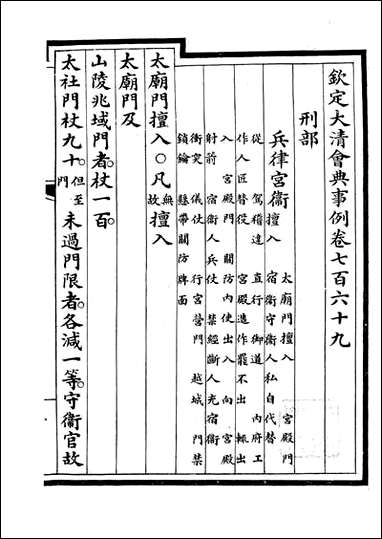 欽定大清會典事例卷七百六十九
刑部
兵律宮衞 太廟門擅入 宮殿門
擅入 宿衞守衞人私自代替
從 駕稽違 直行 御道 內府工
作人匠替役 宮殿造作罷不出 輒出
入 宮殿門 關防內使出入 向 宮殿
射箭 宿衞人兵仗 禁經斷人充宿衞
衝突 儀仗 行宮營門 越城 門禁
鎖鑰 懸帶關防牌面
太廟門擅入○凡無故擅入
太廟門及
山陵兆域門者杖一百
太社門杖九十但至門未過門限者各減一等守衞官故